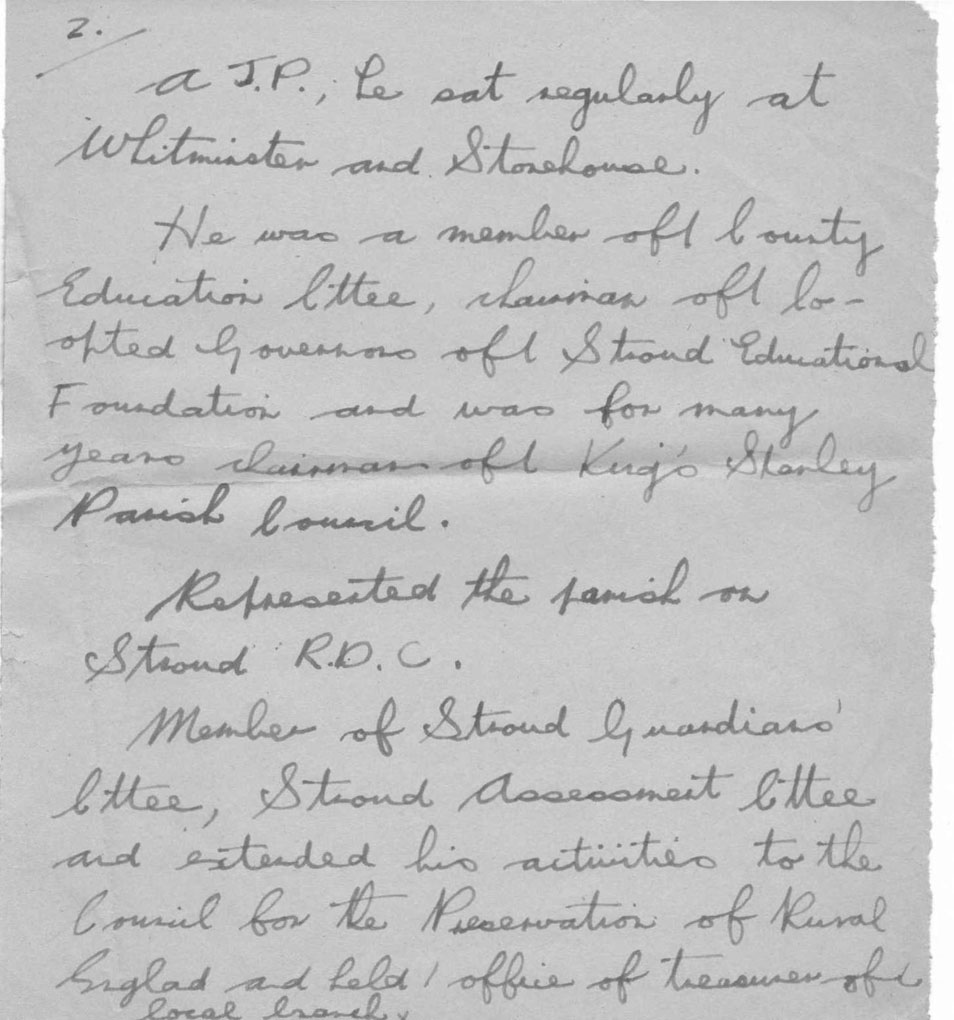 2.
A J.P., he sat regularly at
Whitminster and Stonehouse.
He was a member oft County
Education Cttee, chairman oft Co-
opted Governors oft Stroud Educational
Foundation and was for many
years chairman oft King's Stanley
Parish Council.
Represented the parish on
Stroud R.D.C.
Member of Stroud Guardians'
Cttee, Stroud Assessment Cttee
and extended his activities to the
Council for the Preservation of Rural
Englad ad held / office of treasurer oft
local branch.